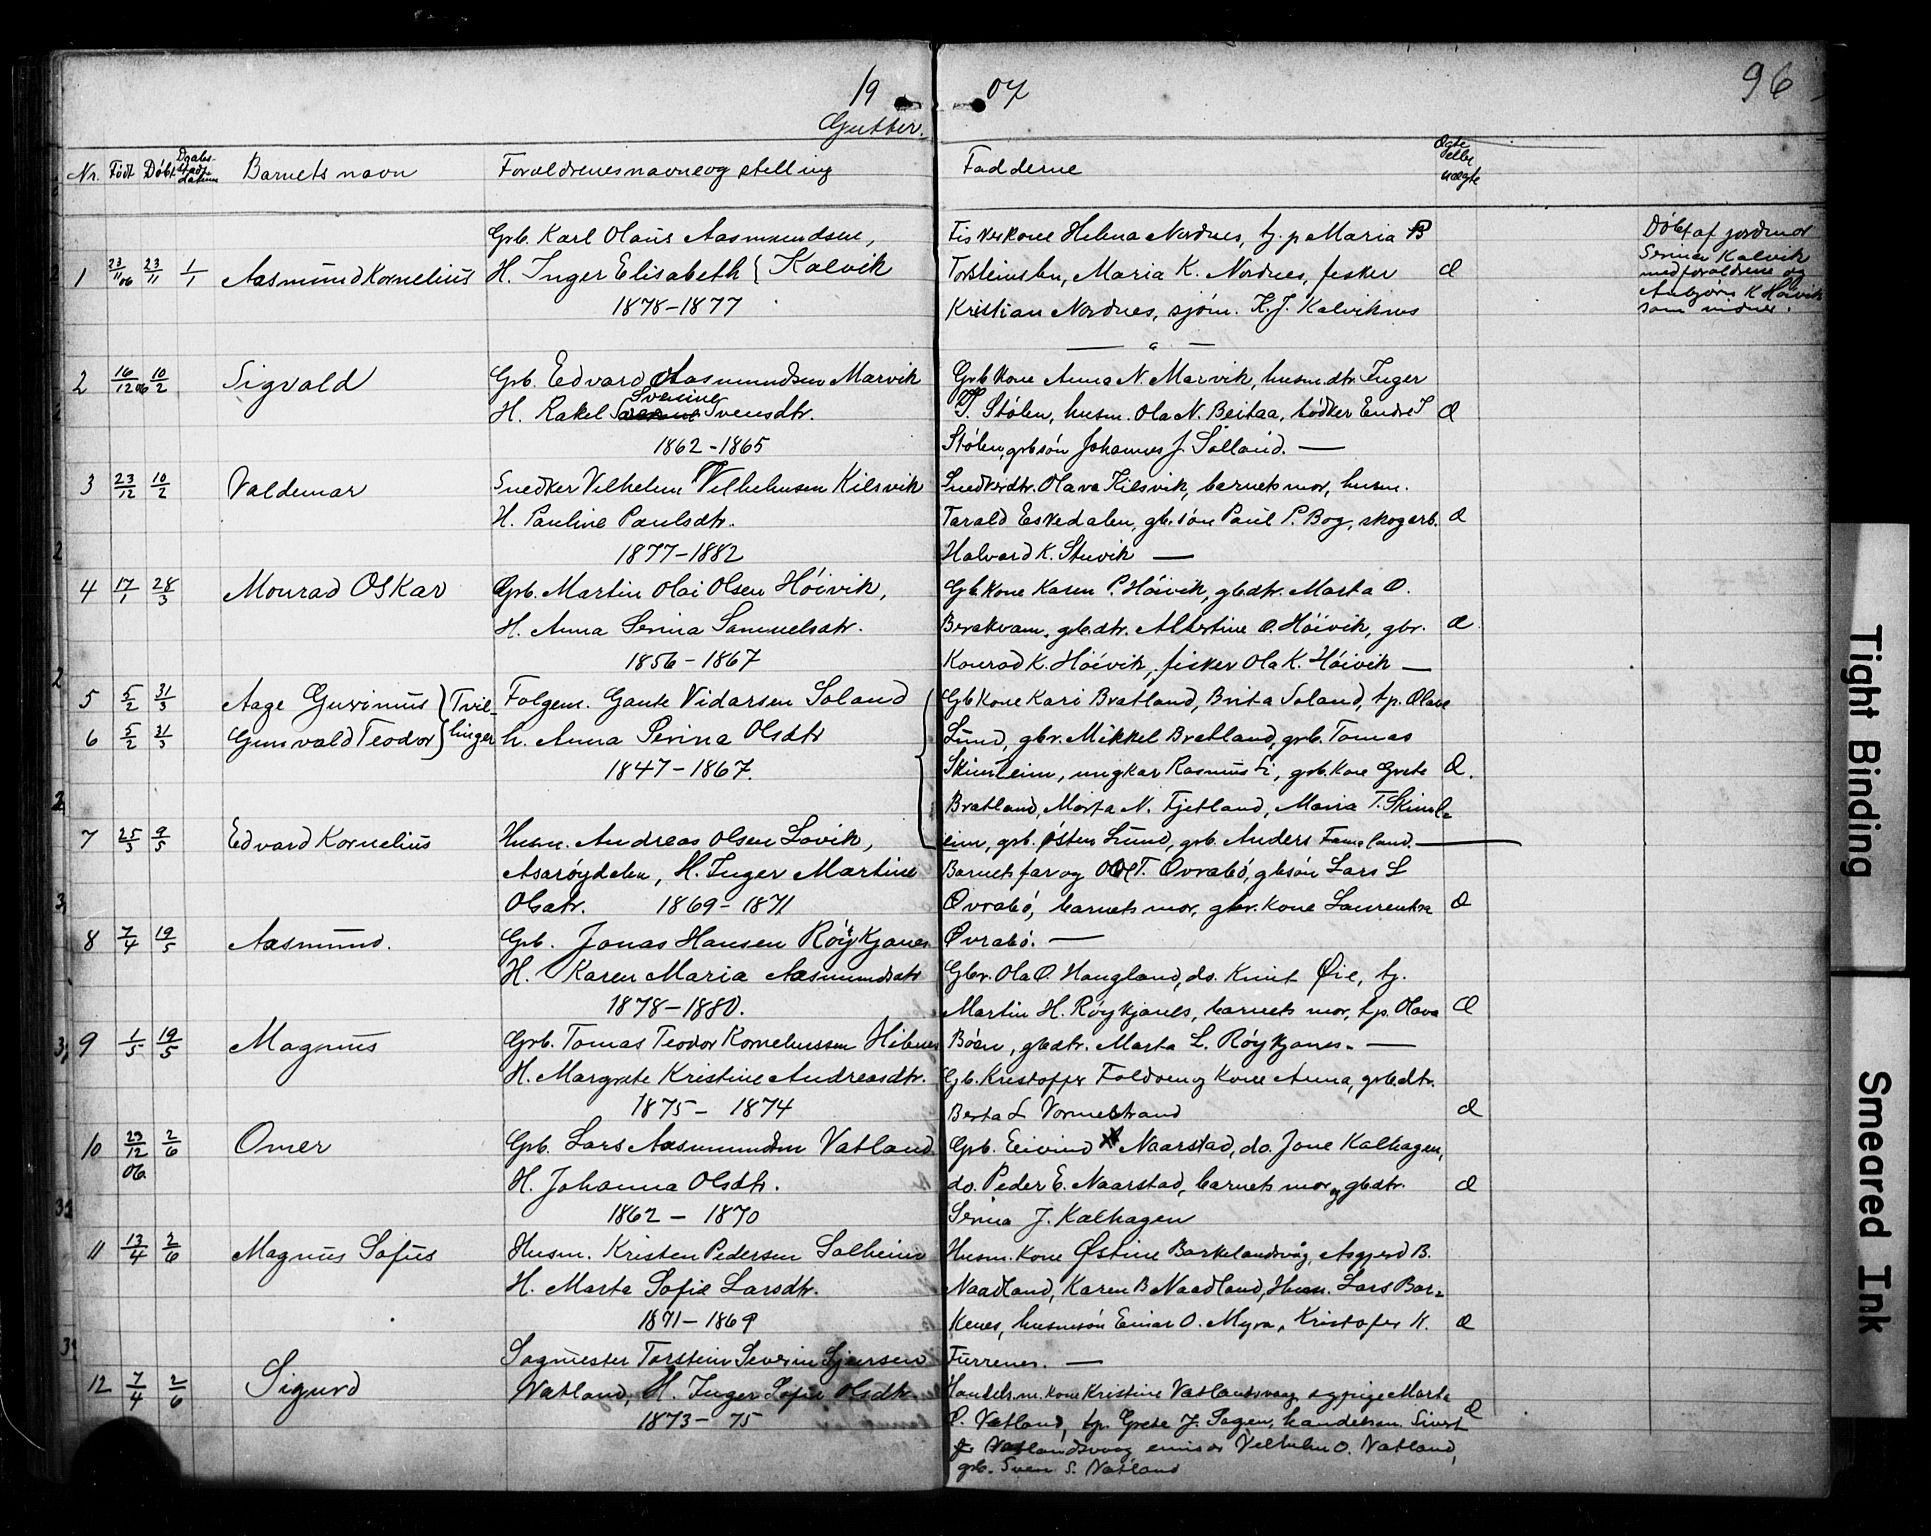 19 07
96
Gutter.
Nr. Født Døbt Daabs- stadf. datum Barnets navn Forældrenes navne og stilling Fadderne Ægte eller uægte
1 23/11 06 23/11 1/1 Aasmund Kornelius
Grb. Karl Olaus Aasmundsen,
H. Inger Elisabeth } Kalvik
1878-1877
Fiskerkone Helena Nordnes, tj. p Maria B
Torsteinsbu, Maria K. Nordnes, fisker Æ
Kristian Nordnes, sjöm. K. J. Kalviknes
Döbt af jordmor
Serina Kalvik
med forældrene og
Anbjörn K Höivik
som vidner.
2 16/12 06 10/2 Sigvald
Grb. Edvard Aasmundsen Marvik
H. Rakel Svensine Svensdtr.
1862-1865
Grb kone Anna N. Marvik, husm.dtr. Inger
T. Stölen, husm. Ola N. Beitaa, bödker Endre T Æ
Stölen, grbsön Johannes J. Sölland. —
3 23/12 10/2 Valdemar
Snedker Vilhelm Vilhelmsen Kilsvik
H. Pauline Paulsdtr.
1877-1882
Snedkerdtr. Olava Kilsvik, barnets mor, husm.
Tarald Eskedalen, gb.sön Paul P. Bog, skogarb. Æ
Halvard K. Stuvik —
4 17/1 28/3 Monrad Oskar
Grb. Martin Olai Olsen Höivik,
H. Anna Serina Samuelsdtr.
1856-1867
Gb kone Karen P. Höivik, gbdtr. Marta O.
Berakvam, grb.dtr. Albertine O. Höivik, gbr. Æ
Konrad K. Höivik, fisker Ola K. Höivik —
5 5/2 31/3 Aage Gurinius } Tvil-
6 5/2 31/3 Gunvald Teodor } linger
Folgem. Gaute Vidarsen Soland
h. Anna Serina Olsdtr
1847-1867.
Gb kone Kari Bratland, Brita Soland, tp. Olave
Lund, gbr. Mikkel Bratland, grb. Tomas
Skimleim, ungkar Rasmus Li, grb. kone Grete Æ.
Bratland, Marta N. Fjetland, Maria T. Skiml-
eim, grb. Östen Lund, grb. Anders Fameland. —
7 25/3 9/5 Edvard Kornelius
Husm. Andreas Olsen Lovik,
Asaröydalen, H. Inger Martine
Olsdtr. 1869-1871
Barnets far og Ole T. Ovrabö, gbsön Lars L
Övrabö, barnets mor, gbr. kone Laurentse Æ
Övrabö. —
8 7/4 19/5 Aasmund.
Grb. Jonas Hansen Röykjanes
H. Karen Maria Aasmundsdtr
1878-1880.
Gbr. Ola O. Haugland, do. Knut Øie, tj.
Martin H. Röykjanes, barnets mor, tp. Olava Æ
Böen, gbdtr. Marta L. Röykjanes. —
9 1/5 19/5 Magnus
Grb. Tomas Teodor Korneliussen Hibnes
H. Margrete Kristine Andreasdtr.
1875- 1874
Gb. Kristoffer Foldöen og kone Anna, grb.dtr.
Berta L Vormestrand Æ
10 29/12 06 2/6 Omer
Grb. Lars Aasmundsen Vatland
H. Johanna Olsdtr.
1862 - 1870
Grb. Eivind Naarstad, do. Jone Kalhagen,
do. Peder E. Naarstad, barnets mor og gbdtr. Æ
Serina J. Kalhagen
11 13/4 2/6 Magnus Sofus
Husm. Kristen Pedersen Solheim
H. Marta Sofie Larsdtr.
1871-1869
Husm. kone Östine Barkelandsvåg, Asgjerd B.
Naadland, Karen B Naadland, Husm. Lars Bar-
kenes, husmsön Einar O. Myra, Kristofer K. Æ
Furrenes. —
12 7/4 2/6 Sigurd
Sagmester Torstein Severin Sjursen
Vatland, H. Inger Sofie Olsdtr.
1873- 75
Handelsm. kone Kristine Vatlandsvaag, sypige Marta
O. Vatland, tp. Grete J. Sagen, handelsm. Sivert Æ
Vatlandsvaag, emisær Vilhelm O. Vatland,
grb. Sven S. Vatland
Tight Binding
Smeared Ink